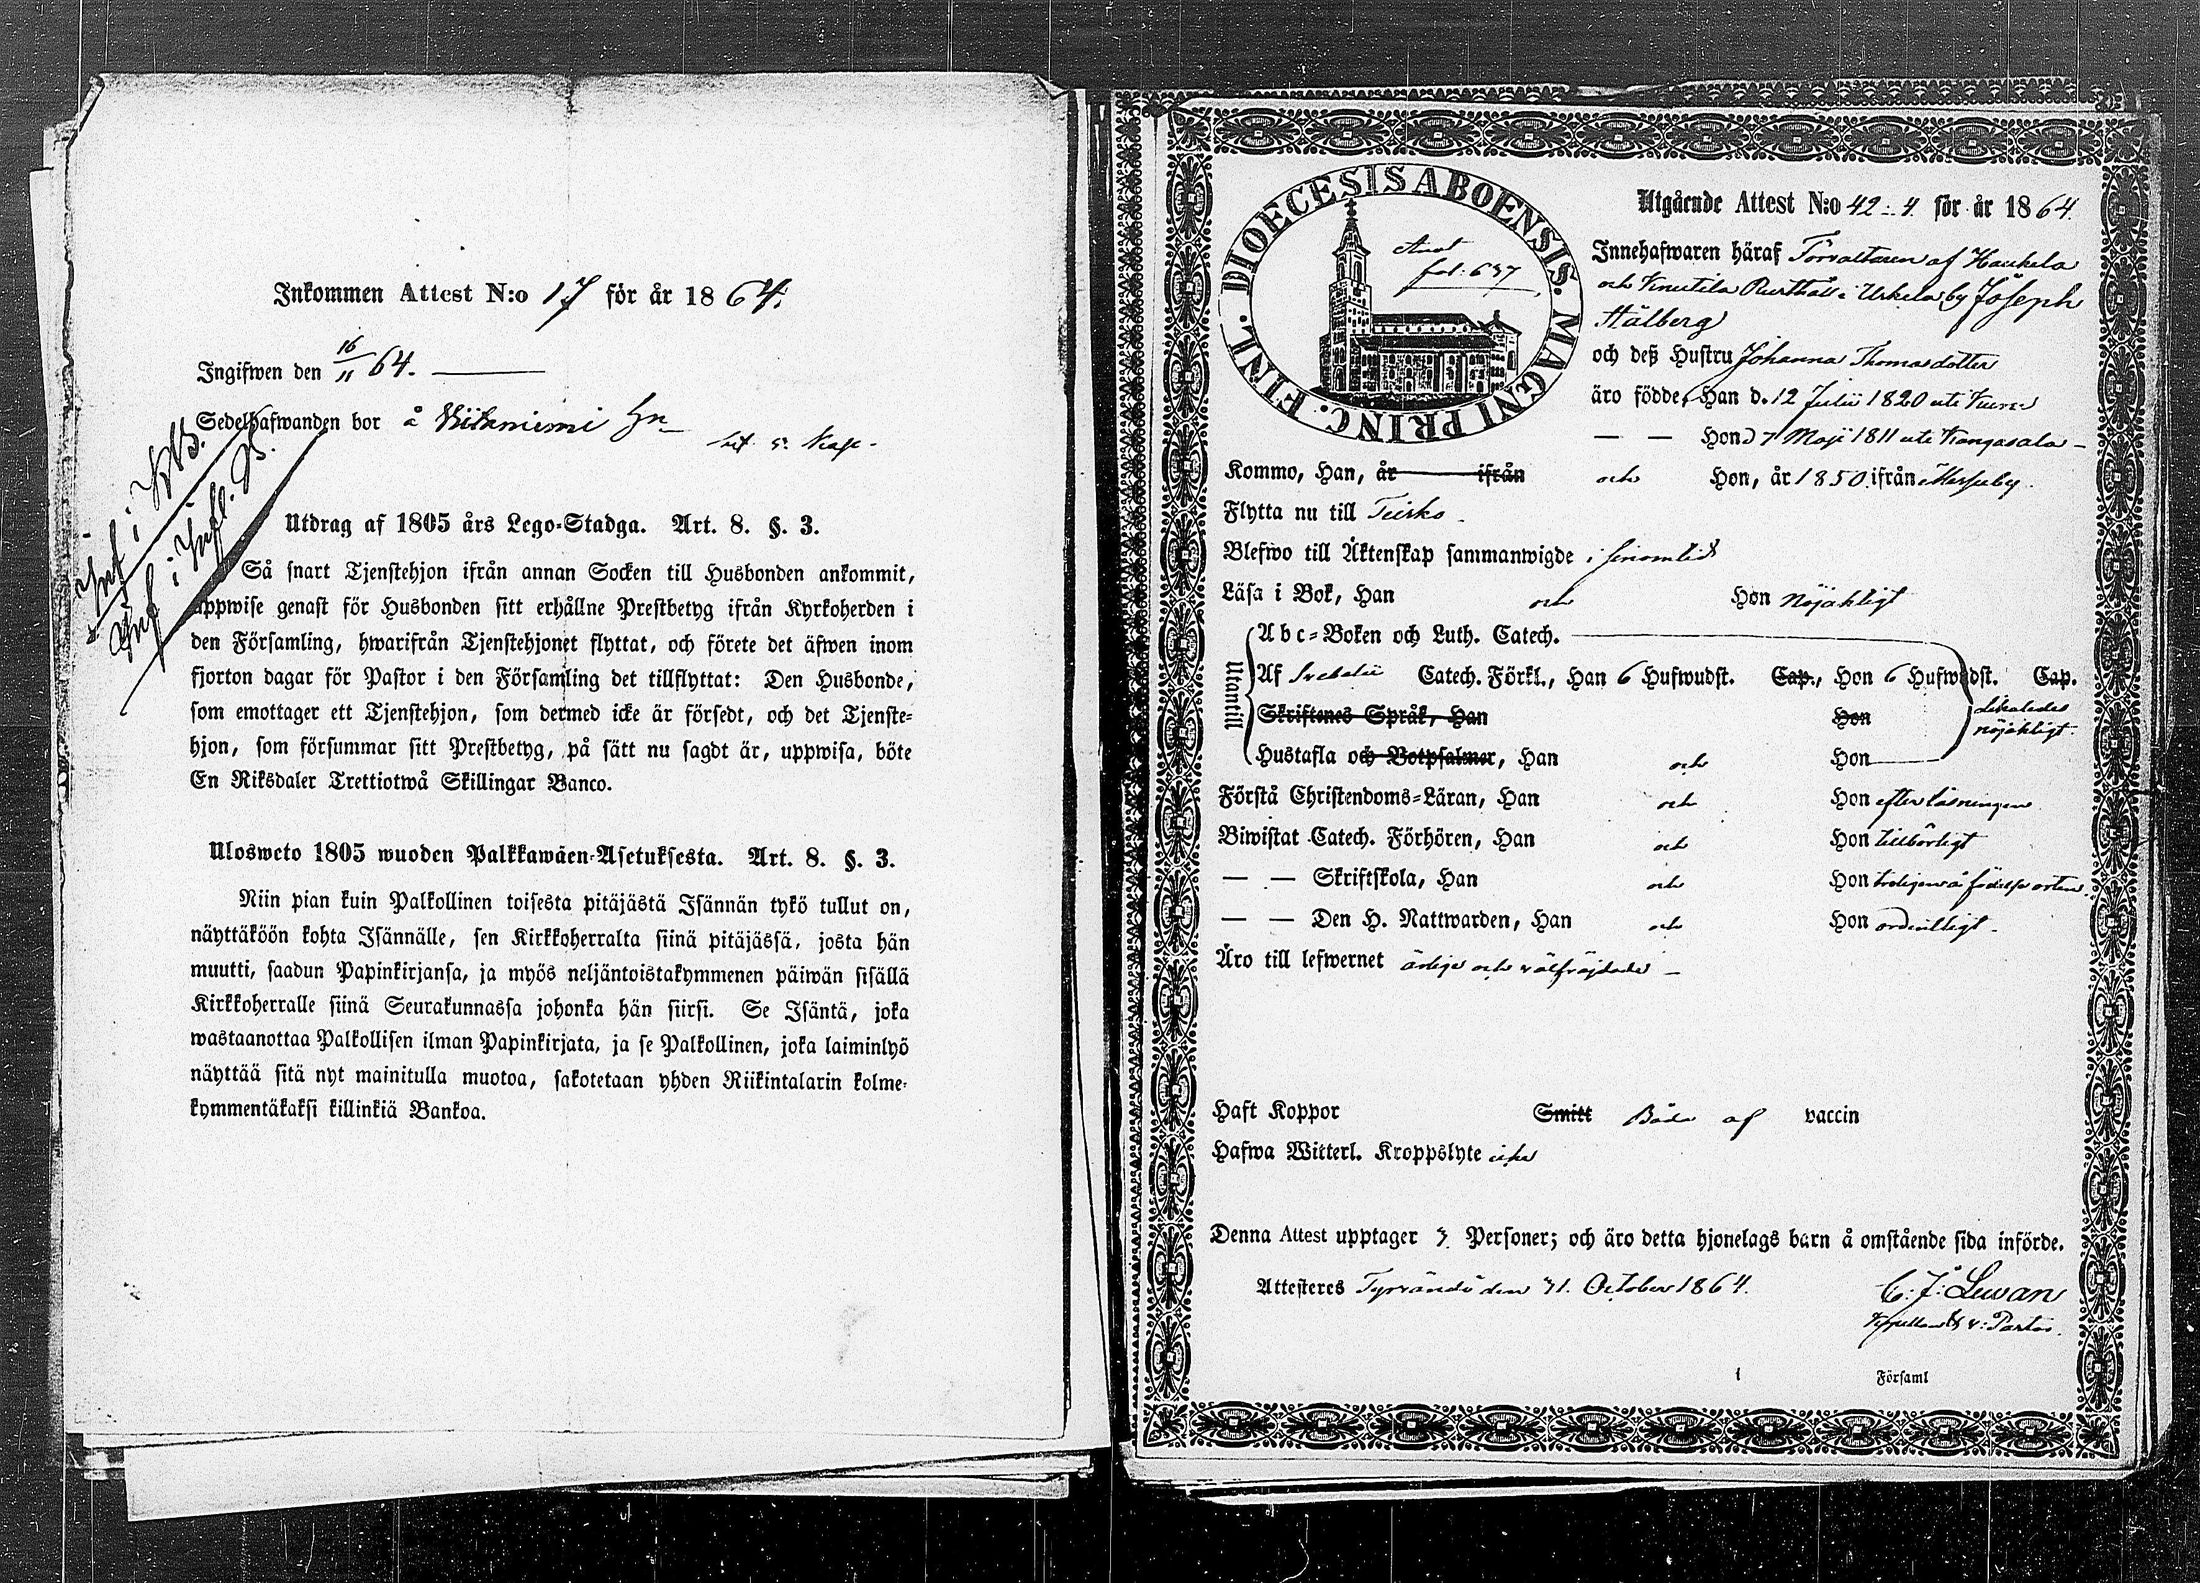 Inkommen Attest N:o 17 för år 1864.
Ingifwen den 16/11 64.
Sedelhafwanden bor å
Inf i
Inf i Infl. B.
Utdrag af 1805 års Lego-Stadga. Art. 8. §. 3.
Så snart Tjenstehjon ifrån annan Socken till Husbonden ankommit,
uppwise genast för Husbonden sitt erhållne Prestbetyg ifrån Kyrkoherden i
den Församling, hwarifrån Tjenstehjonet flyttat, och förete det äfwen inom
fjorton dagar för Pastor i den Församling det tillflyttat: Den Husbonde,
som emottager ett Tjenstehjon, som dermed icke är försedt, och det Tjenste-
hjon, som försummar sitt Prestbetyg, på sätt nu sagdt är, uppwisa, böte
En Riksdaler Trettiotwå Skillingar Banco.
Ulosweto 1805 wuoden Palkkawäen-Asetuksesta. Art. 8. §. 3.
Niin pian kuin Palkollinen toisesta pitäjästä Isännän tykö tullut on,
näyttäköön kohta Isännälle, sen Kirkkoherralta siinä pitäjässä, josta hän
muutti, saadun Papinkirjansa, ja myös neljäntoistakymmenen päiwän sisällä
Kirkkoherralle siinä Seurakunnassa johonka hän siirsi. Se Isäntä, joka
wastaanottaa Palkollisen ilman Papinkirjata, ja se Palkollinen, joka laiminlyö
näyttää sitä nyt mainitulla muotoa, sakotetaan yhden Riikintalarin kolme-
kymmentäkaksi killinkiä Bankoa.
DIOECESIS ABOENSIS. MAGNI PRINC. FINL.
fol: 637
Utgående Attest N:o 42 för år 1864.
Innehafwaren häraf Förvaltaren af Haukela
och Knutila Rusthåll i by Joseph
Stålberg
och deß Hustru Johanna Thomasdotter
äro födde, Han d. 12 Julii 1820 uti
— — Hon d 7 Maji 1811 uti Kangasala
Kommo, Han, år ifrån och Hon, år 1850 ifrån Messuby.
Flytta nu till Teisko.
Blefwo till Äktenskap sammanwigde i sinom tid
Läsa i Bok, Han och Hon nöjaktigt
Utantill
Abc-Boken och Luth. Catech.
Af Svebelii Catech. Förkl., Han 6 Hufwudst. Cap., Hon 6 Hufwudst. Cap.
Skriftenes Språk, Han Hon likaledes nöjaktigt.
Hustafla och Botpsalmer, Han och Hon
Förstå Christendoms-Läran, Han och Hon efter läsningen
Biwistat Catech. Förhören, Han och Hon tillbörligt
— — Skriftskola, Han och Hon å födelse orten
— — Den H. Nattwarden, Han och Hon ordentligt.
Äro till lefwernet ärlige och välfrejdade
Haft Koppor Smitt Båda af vaccin
Hafwa Witterl. Kroppslyte icke
Denna Attest upptager 3. Personer; och äro detta hjonelags barn å omstående sida införde.
Attesteres Tyrvändö den 31. October 1864.
C. J: Lewan
v: Pastor.
Församl